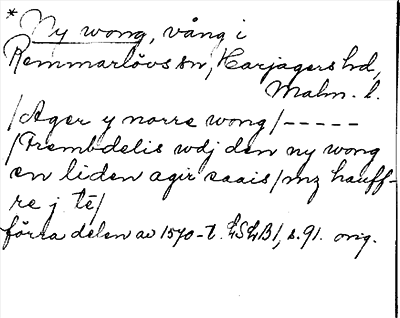 * Ny wong, vång i
Remmarlövs sn, Harjagers hd,
Malm. l.
/Ager y norre wong/-----
/Frembdelis wdj den ny wong
en liden agir saais/mz hauff-
re j tē/
förra delen av 1570-t. LSLB1, s. 91. orig.